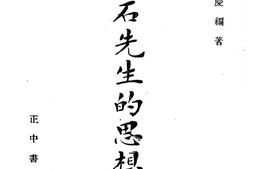 慶編著
石先生的思想
正中書